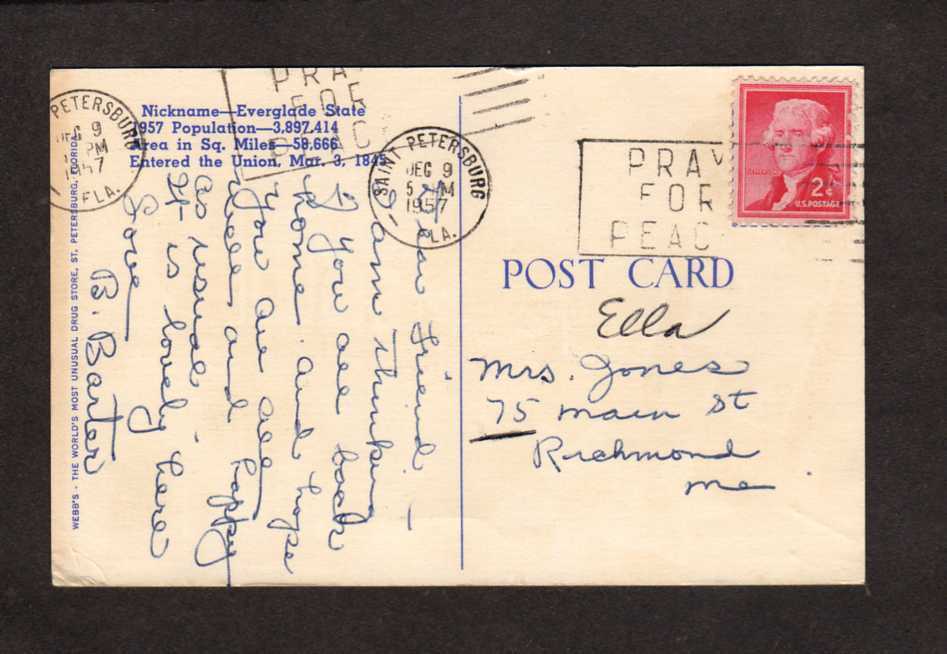 PETERSBURG
DEC 9
PM
1957
FLA.
PRAY
FOR
PEAC
Nickname—Everglade State
1957 Population—3,897,414
Area in Sq. Miles—58,666
Entered the Union, Mar. 3, 1845
SAINT PETERSBURG
DEC 9
5 PM
1957
FLA.
PRAY
FOR
PEAC
2¢
U.S. POSTAGE
POST CARD
Ella
Mrs. Jones
75 Main St
Richmond
Me
Dear Friend —
I am thinking
you are back
home and hope
you are all
well and happy
as usual -
It is lovely here
Love
B. Barter
WEBB'S - THE WORLD'S MOST UNUSUAL DRUG STORE, ST. PETERSBURG, FLORIDA